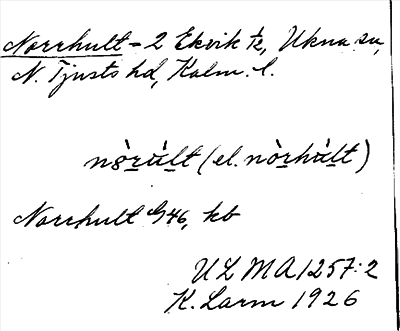 Norrhult - 2 Ekvik ½, Ukna sn,
N. Tjusts hd, Kalm. l.
nò̱ṟúḻt (el. nòṟhúḻt)
Norrhult G 46, kb
ULMA 1257:2
K. Larm 1926